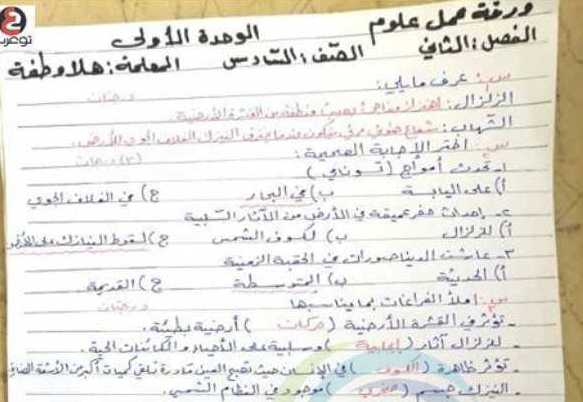 ورقة عمل علوم
الوحدة الأولى
الفصل: الثاني الصف: السادس المعلمة: هلا وطفة
س: عرف ما يلي: درجتان
الزلزال: اهتزاز مفاجئ يصيب منطقة من القشرة الأرضية
الشهاب: شعاع ضوئي مرئي يتكون عندما يخترق النيزك الغلاف الجوي للأرض.
س: اختر الإجابة الصحيحة: (٣) درجات
١- تحدث أمواج (تسونامي)
أ) على اليابسة ب) في البحار ج) في الغلاف الجوي
٢- إحداث حفر عميقة في الأرض من الآثار السلبية
أ) للزلزال ب) لكسوف الشمس ج) لسقوط النيازك على الأرض
٣- عاشت الديناصورات في الحقبة الزمنية
أ) الحديثة ب) المتوسطة ج) القديمة
س: املأ الفراغات بما يناسبها درجتان
- تؤثر في القشرة الأرضية (حركات) أرضية بطيئة.
- للزلزال آثار (إيجابية) وسلبية على الأحياء والكائنات الحية.
- تؤثر ظاهرة (الكسوف) في الإنسان حيث تصبح العين قادرة تلقي كميات أكبر من الأشعة الضارة
- النيزك جسم (صخري) موجود في النظام الشمسي.